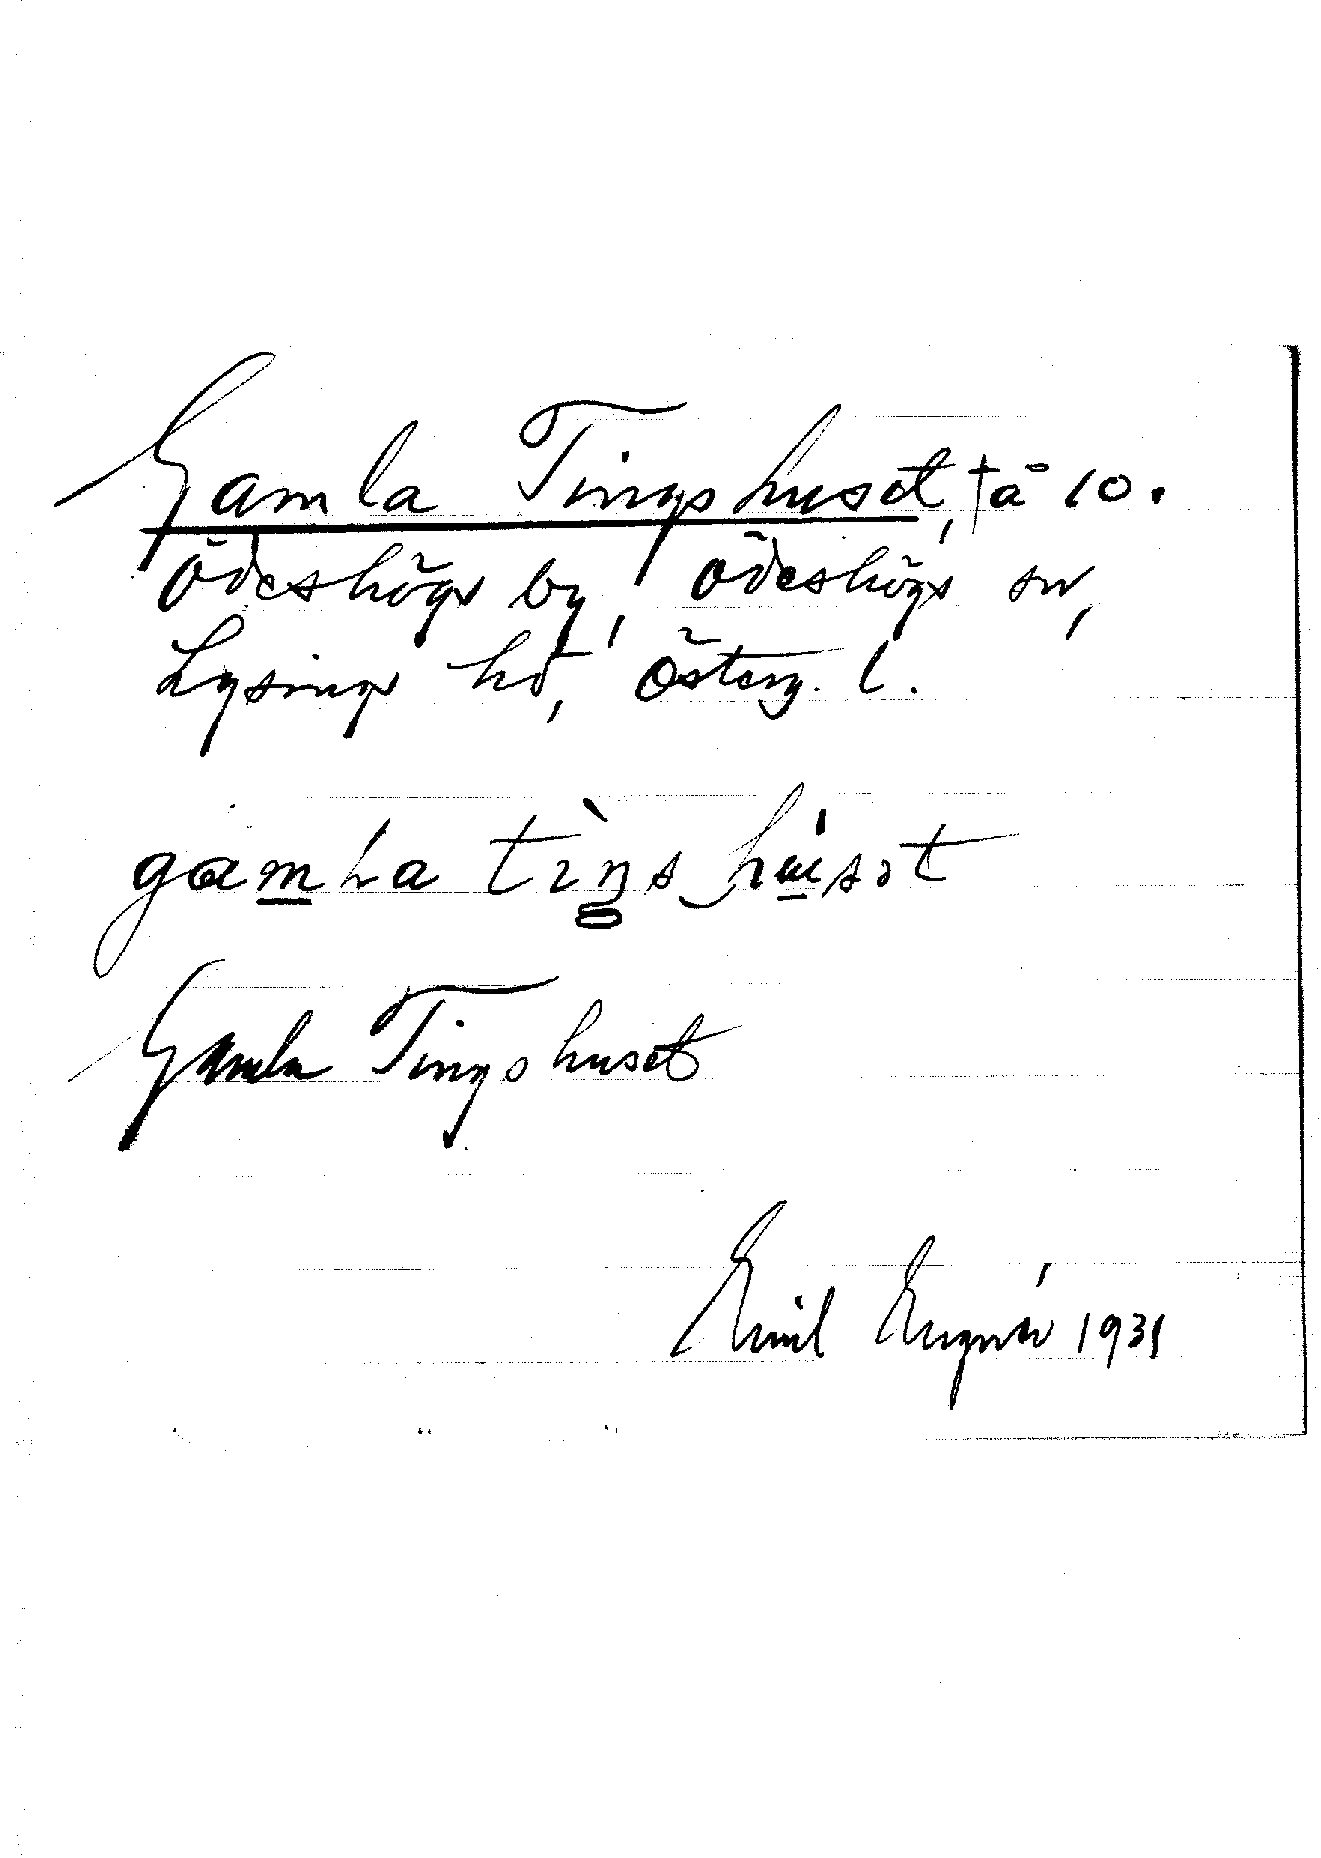 Gamla Tingshuset, † å 10.
Ödeshögs by, Ödeshögs sn,
Lysings hd, Österg. l.
gamla tiŋs hùsət
Gamla Tingshuset
Emil 1931